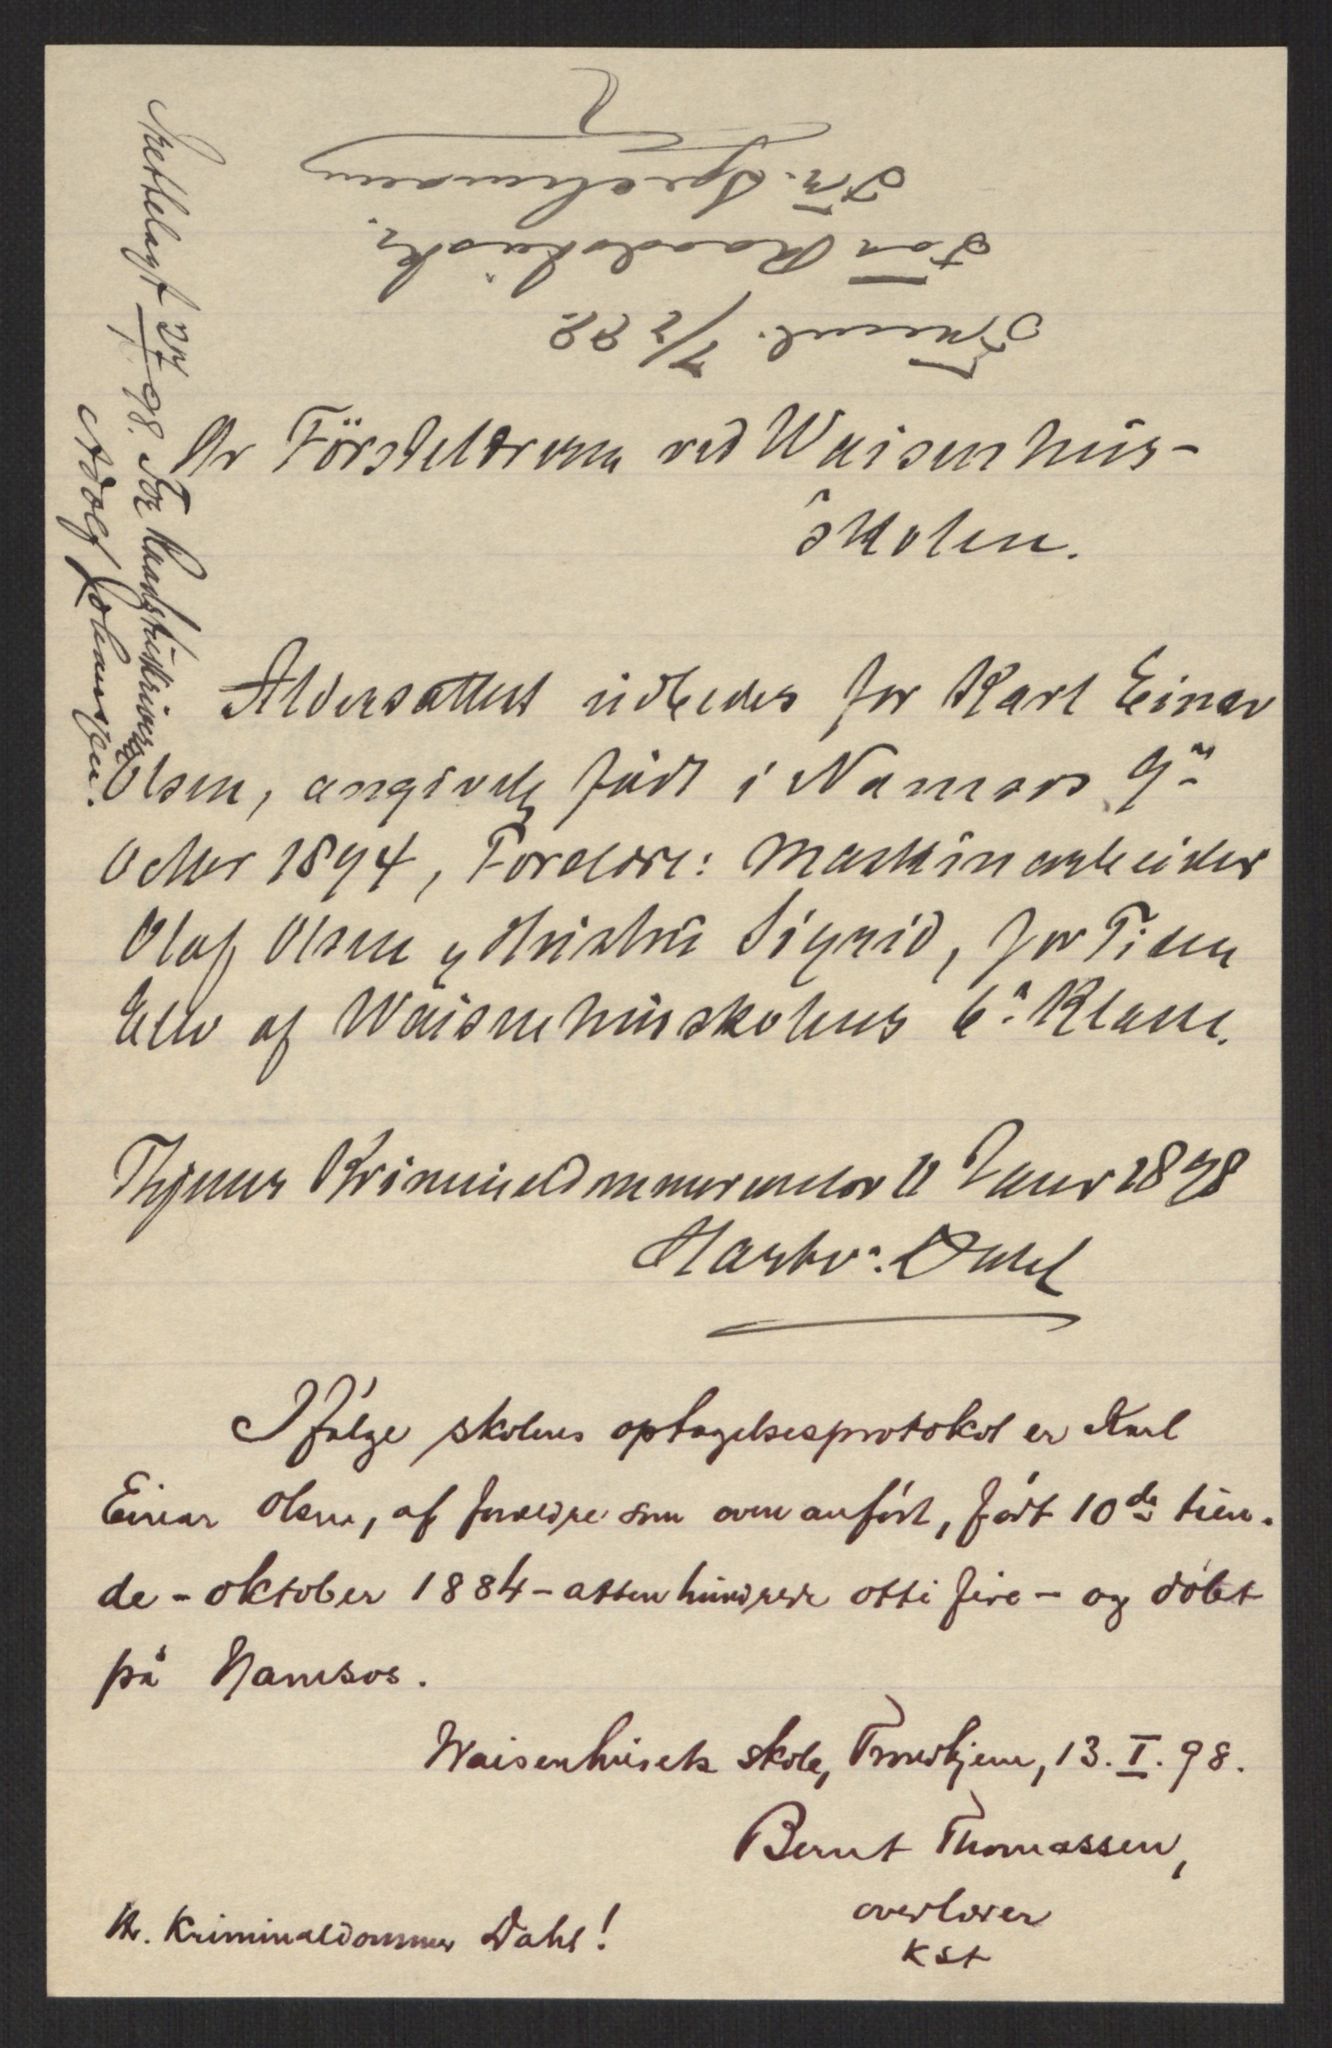 Freml. 7/2 98
For Raadstuskr.
Fr. Sprehmann
Fretlelagt 27/1 98. For Raadstuskriver
Adolf Johansen.
Hr Förstelæreren ved Waisenhüs-
skolen.
Aldersattest üdbedes for Karl Einar
Olsen, angivelig född i Namsos 9de
Octbr 1894, Forældre: Maskinarbeider
Olaf Olsen og Hüstrü Sigrid, for Tiden
Elev af Waisenhüsskolens 6te Klasse.
Thjems Kriminaldommerembede 11 Januar 1898
Hartv. Dahl
Ifølge skolens optagelsesprotokol er Karl
Einar Olsen, af forældre som oven anført, født 10de tien-
de - oktober 1884 - atten hundrede otti fire - og døbt
på Namsos.
Waisenhusets skole, Trondhjem, 13. I. 98.
Bernt Thomassen,
overlærer
kst
Hr. Kriminaldommer Dahl!